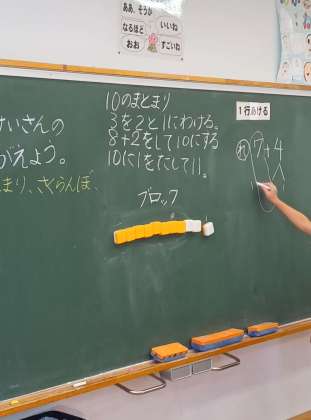 ああ、そうか
いいね
なるほど
すごいね
10のまとまり
3を2と1にわける。
8+2をして10にする
10に1をたして11。
ブロック
1行あける
7+4
いさんの
がえよう。
まり、さくらんぼ、